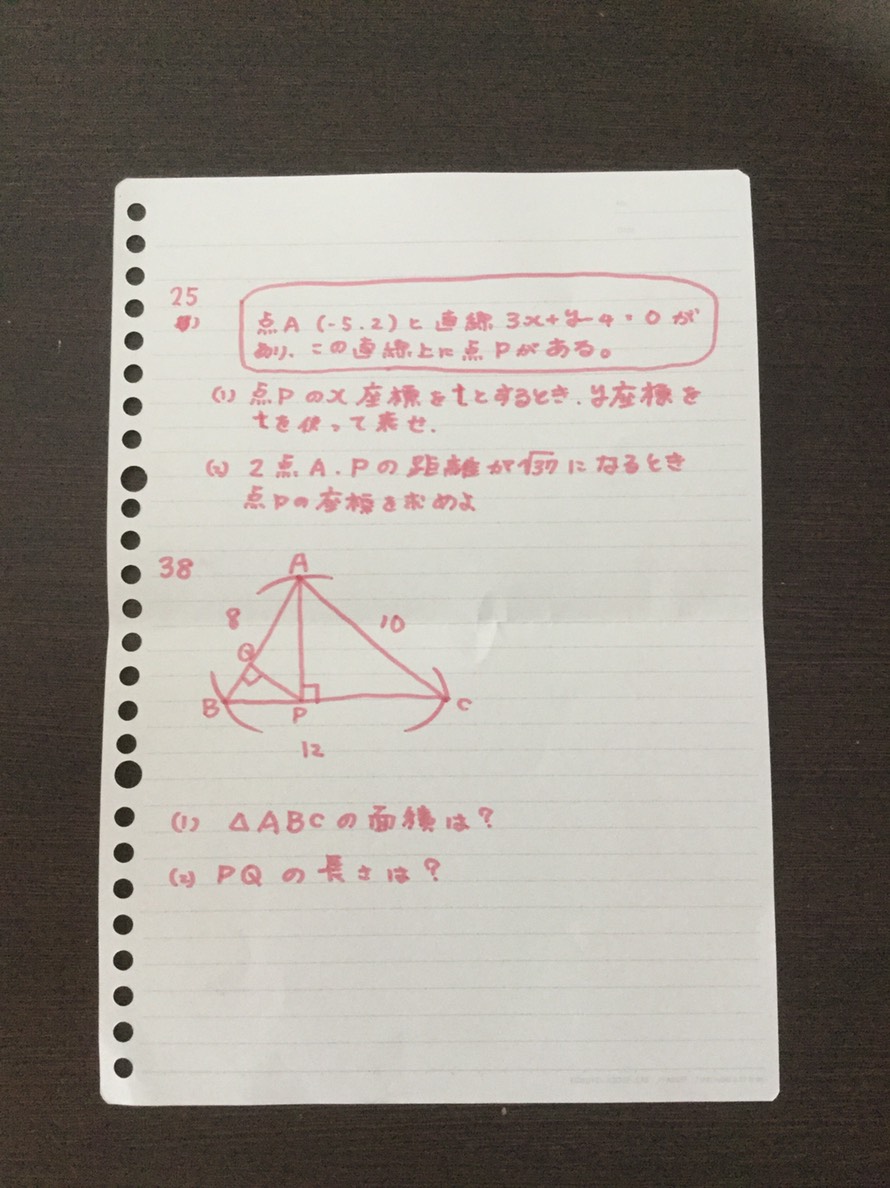 25
点A (-5.2) と 直線 3x+y-4=0 が
あり、この直線上に点Pがある。
(1) 点Pのx座標をtとするとき、y座標を
tを使って表せ.
(2) 2点A.Pの距離が√37になるとき
点Pの座標を求めよ
38
A
8
10
Q
B
P
C
12
(1) △ABCの面積は?
(2) PQの長さは?